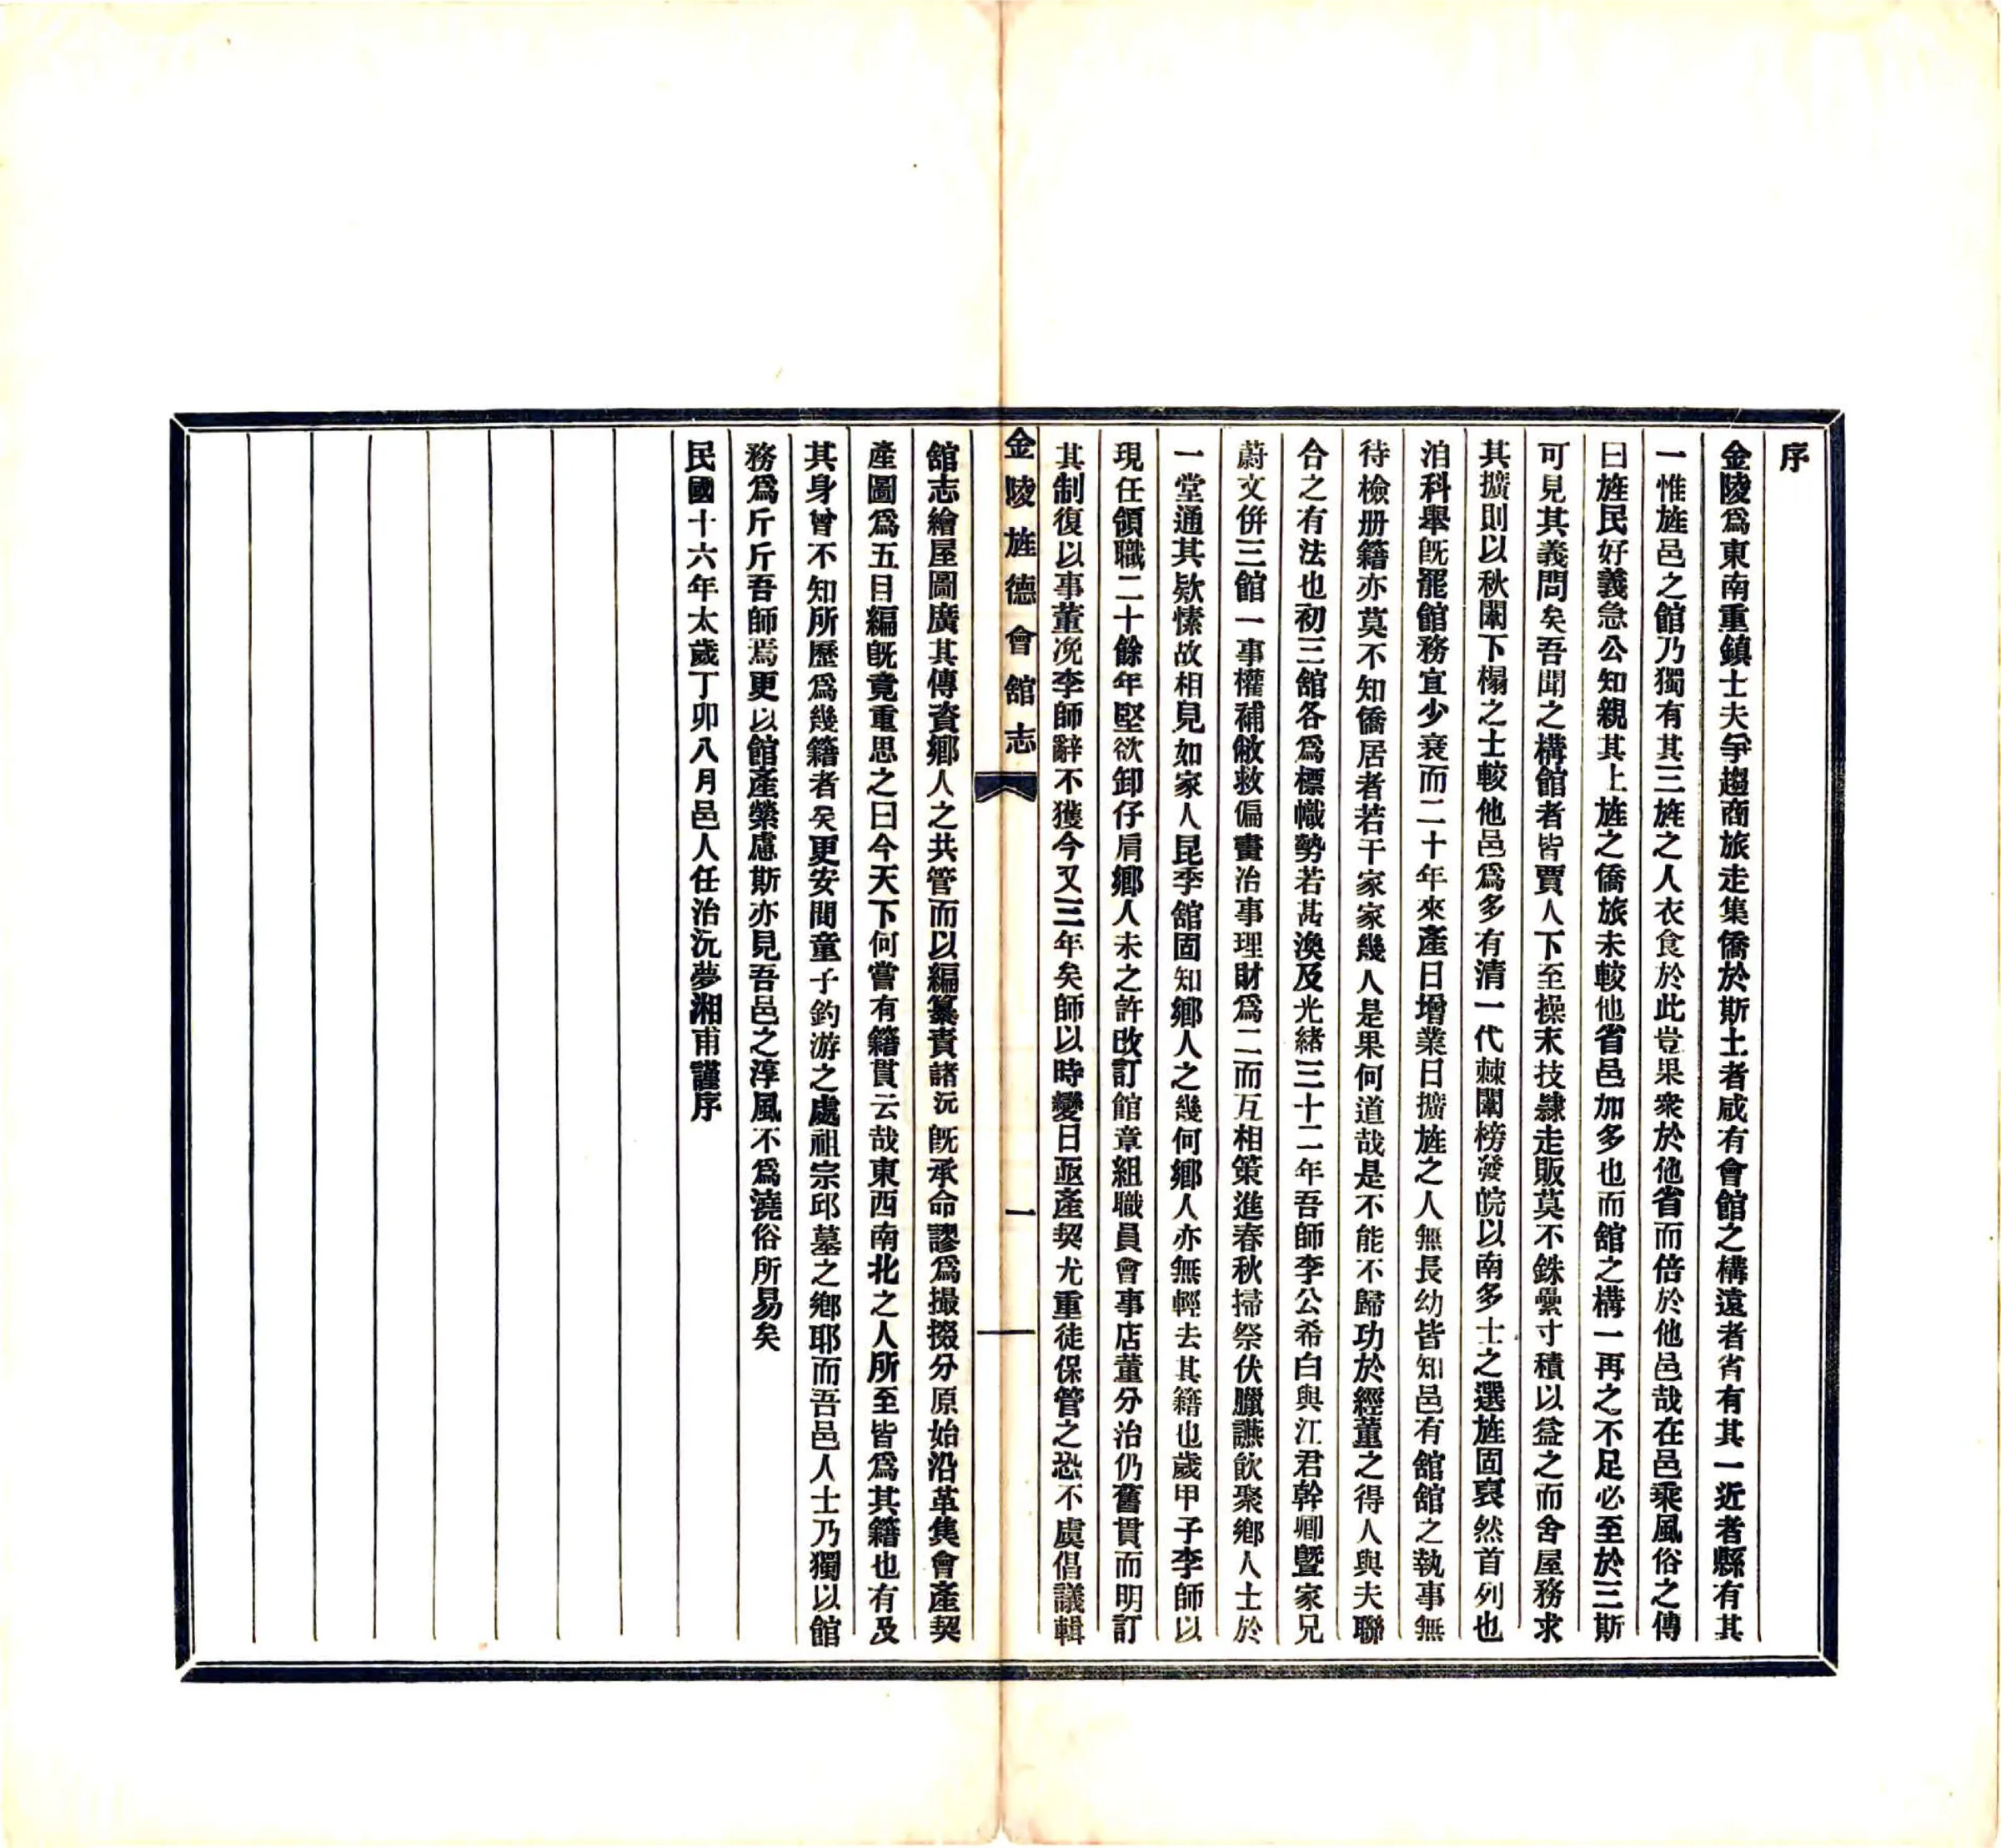 序
金陵爲東南重鎮士夫爭趨商旅走集僑於斯土者咸有會館之構遠者省有其一近者縣有其
一惟旌邑之館乃獨有其三旌之人衣食於此豈果衆於他省而倍於他邑哉在邑乘風俗之傳
曰旌民好義急公知親其上旌之僑旅未較他省邑加多也而舘之構一再之不足必至於三斯
可見其義問矣吾聞之構館者皆賈人下至操末技隸走販莫不銖纍寸積以益之而舍屋務求
其擴則以秋闈下榻之士較他邑爲多有清一代棘闈榜發皖以南多士之選旌固裒然首列也
洎科舉旣罷館務宜少衰而二十年來產日增業日擴旌之人無長幼皆知邑有舘舘之執事無
待檢册籍亦莫不知僑居者若干家家幾人是果何道哉是不能不歸功於經董之得人與夫聯
合之有法也初三舘各爲標幟勢若甚渙及光緒三十二年吾師李公希白與江君幹卿曁家兄
蔚文併三館一事權補敝救偏畫治事理財爲二而互相策進春秋掃祭伏臘讌飲聚鄉人士於
一堂通其欵愫故相見如家人昆季舘固知鄉人之幾何鄉人亦無輕去其籍也歲甲子李師以
現任領職二十餘年堅欲卸仔肩鄉人未之許改訂館章組職員會事店董分治仍舊貫而明訂
其制復以事董浼李師辭不獲今又三年矣師以時變日亟產契尤重徒保管之恐不虞倡議輯
金陵旌德會舘志
一
舘志繪屋圖廣其傳資鄉人之共管而以編纂責諸沅旣承命謬爲撮掇分原始沿革集會產契
產圖爲五目編旣竟重思之曰今天下何嘗有籍貫云哉東西南北之人所至皆爲其籍也有及
其身曾不知所歷爲幾籍者矣更安問童子釣游之處祖宗邱墓之鄉耶而吾邑人士乃獨以館
務爲斤斤吾師焉更以館產縈慮斯亦見吾邑之淳風不爲澆俗所易矣
民國十六年太歲丁卯八月邑人任治沅夢湘甫謹序